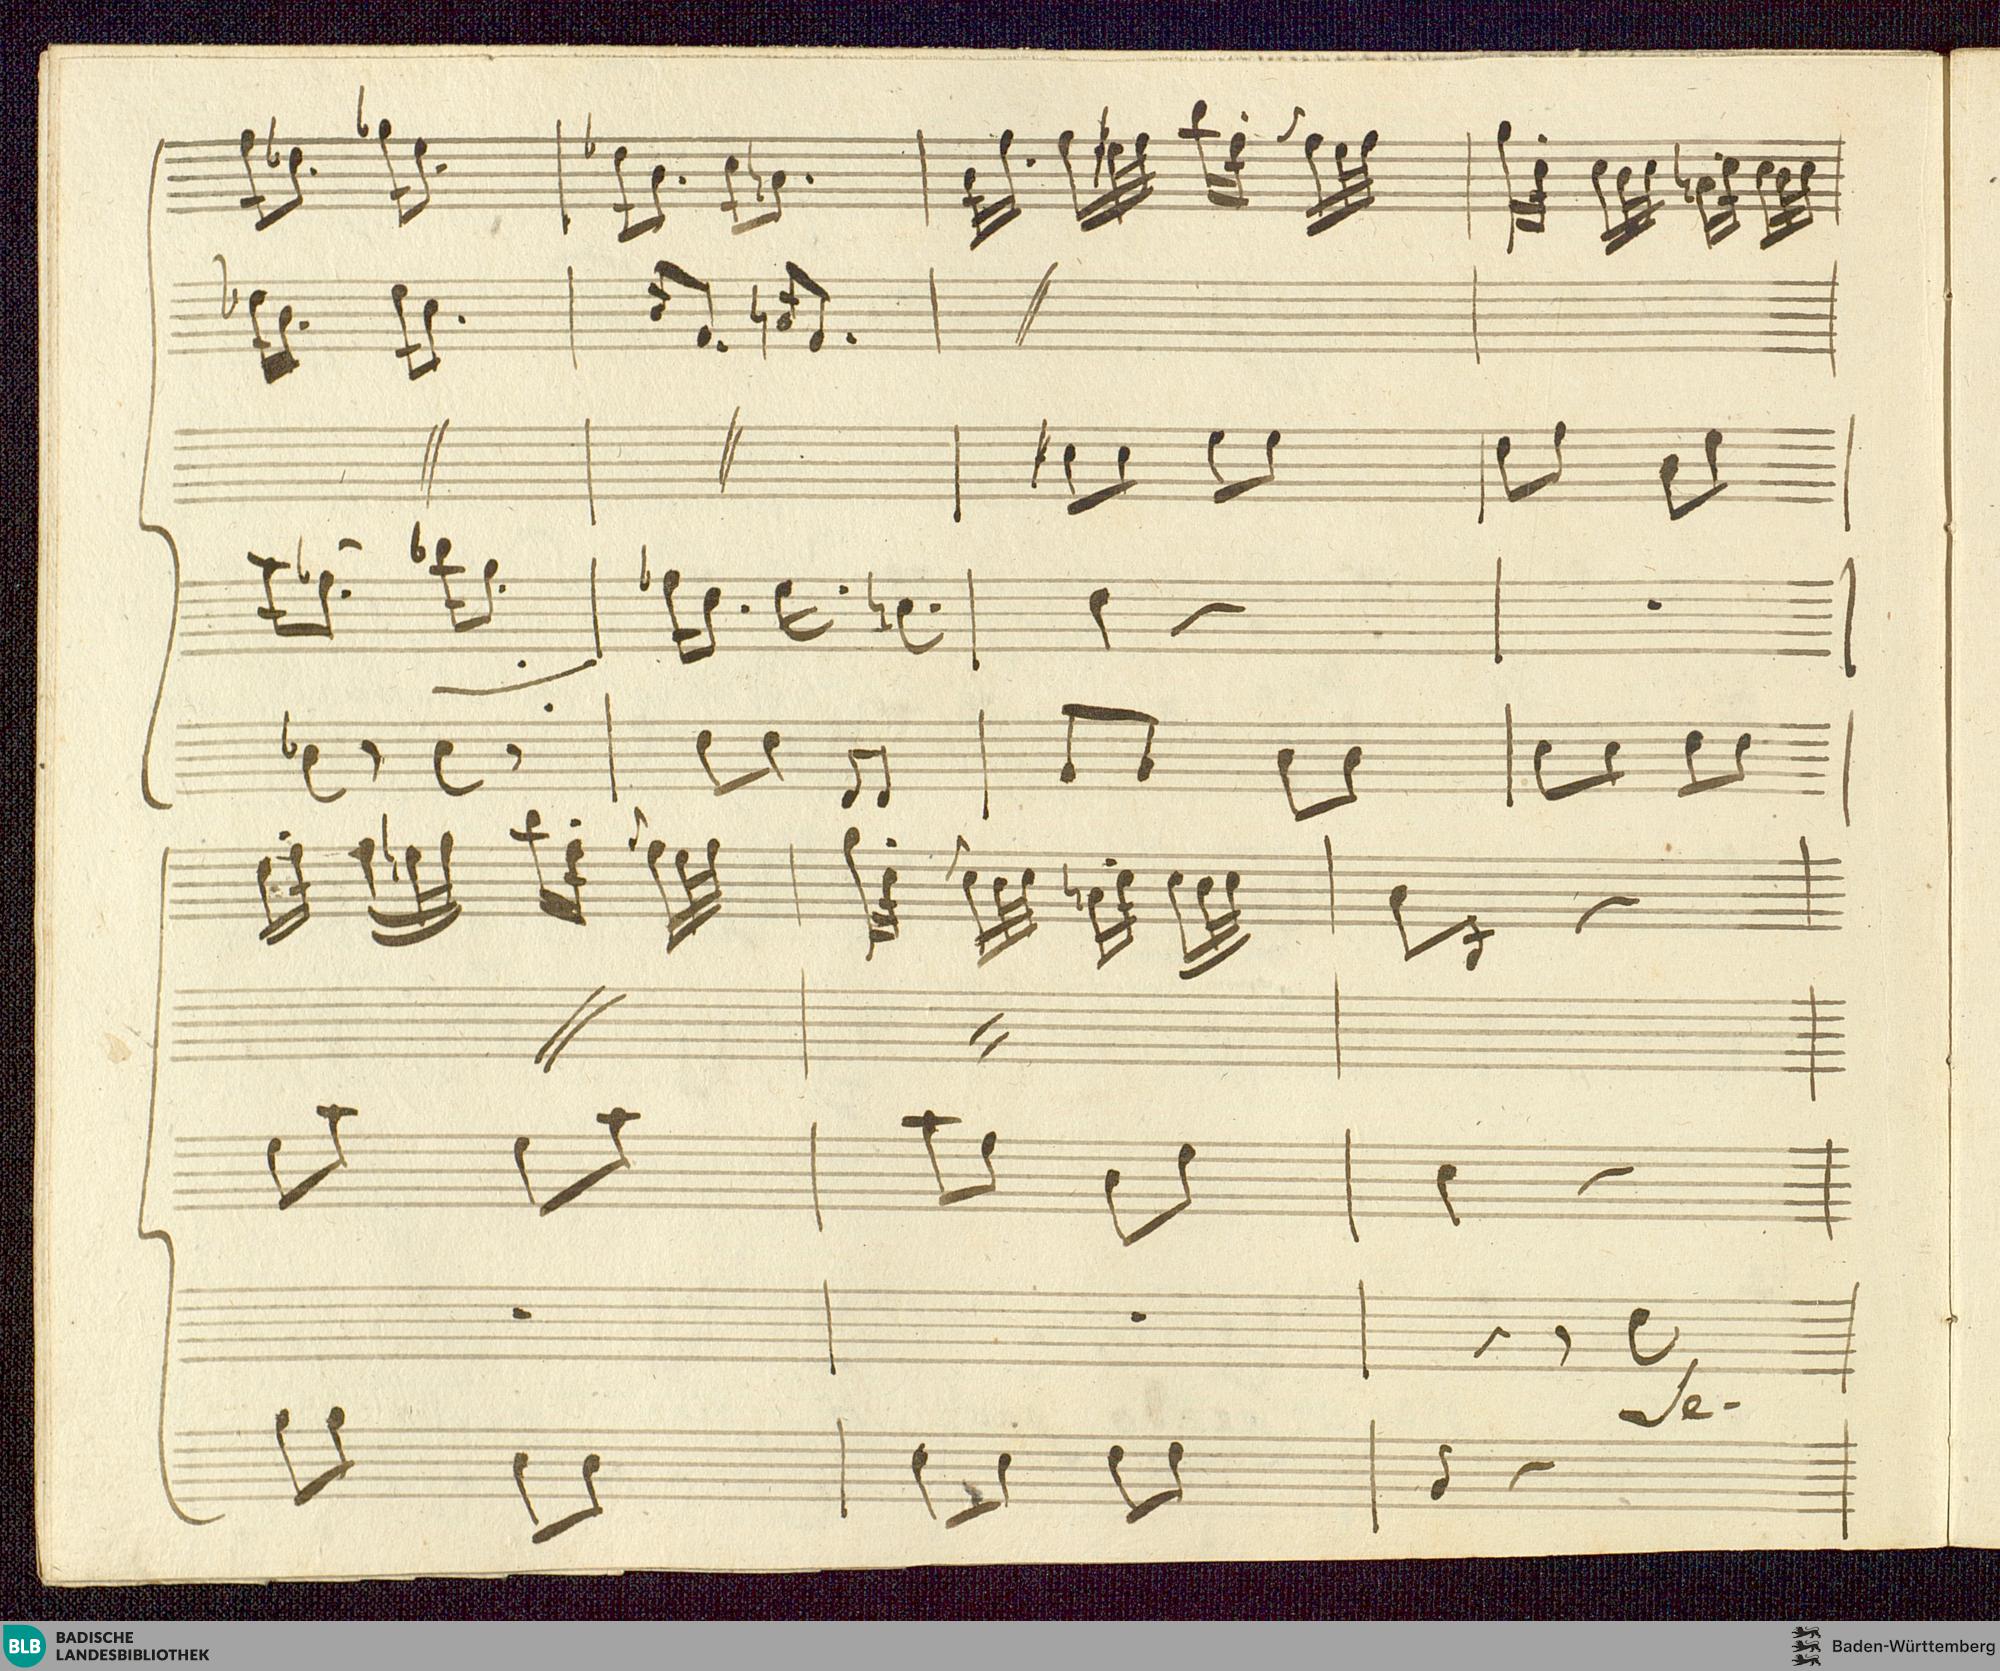 Se-
BLB BADISCHE
LANDESBIBLIOTHEK
Baden-Württemberg